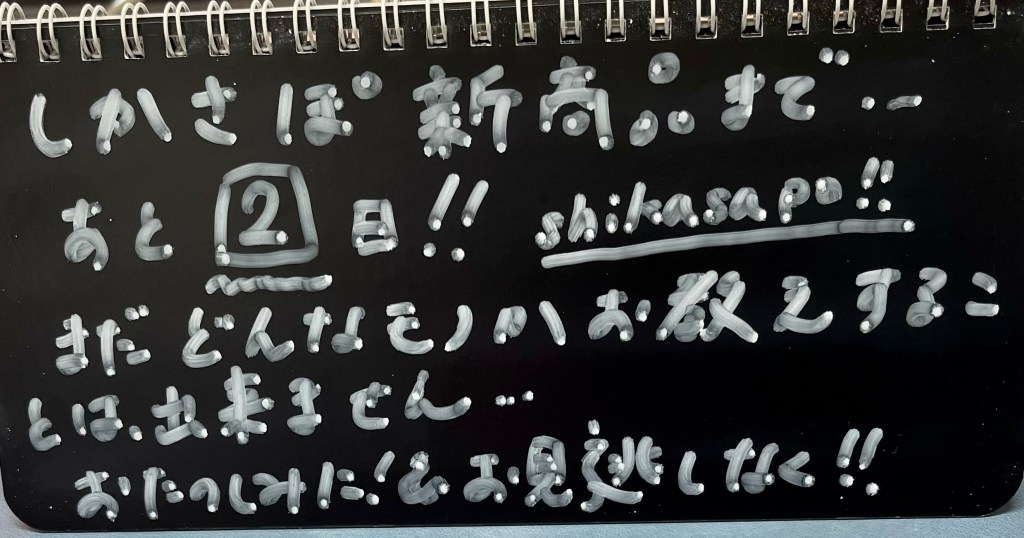 しかさぽ 新商品まで…
あと 2 日!! shikasapo!!
まだどんなモノかお教えするこ
とは、出来ません…
おたのしみに!!お見逃しなく!!